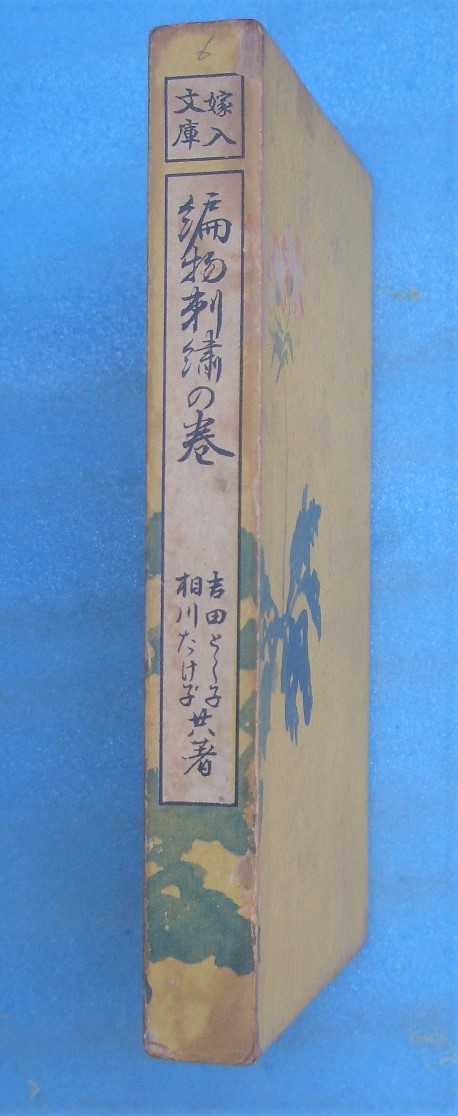 6
嫁入
文庫
編物刺繍の巻
吉田とし子
相川たけ子
共著